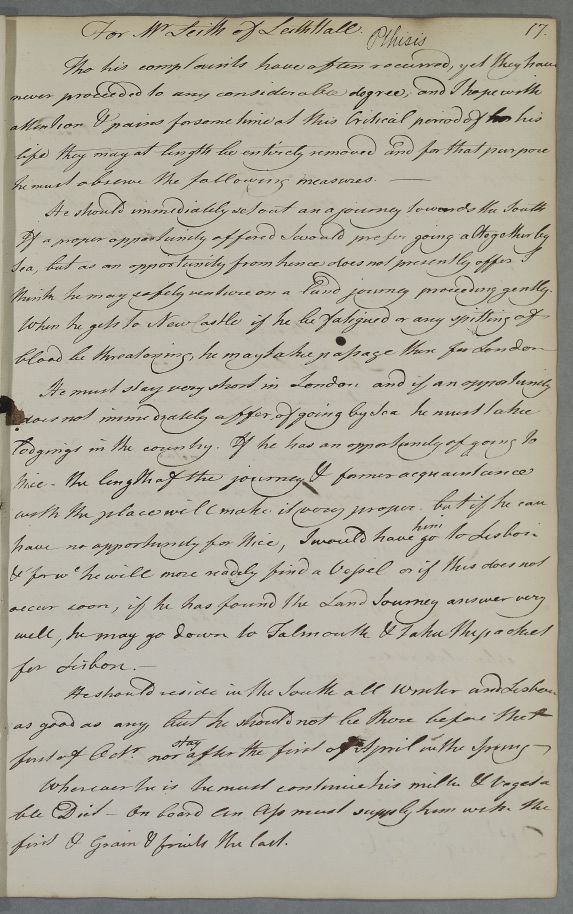 For Mr Leith of Leith Hall. Pthisis 17.
Tho his complaints have often recurred, yet they have
never proceeded to any considerable degree, and I hope with
attention & pains for some time at this Critical period of his
life they may at length be entirely removed and for that purpose
he must observe the following measures. —
He should immediately set out on a journey towards the South
If a proper opportunity offered I would prefer going altogether by
Sea, but as an opportunity from hence does not presently offer I
think he may safely venture on a Land journey proceeding gently.
When he gets to New Castle if he be fatigued or any spitting of
blood be threatening, he may take passage there for London
He must stay very short in London and if an opportunity
does not immediately offer of going by Sea he must take
Lodgings in the country. If he has an opportunity of going to
Nice - the length of the journey & former acquaintance
with the place will make it very proper. but if he can
have no opportunity for Nice, I would have him go to Lisbon
& for wc he will more readily find a Vessel or if this does not
occur soon, if he has found the Land Journey answer very
well, he may go down to Falmouth & take the packet
for Lisbon. —
He should reside in the South all Winter and Lisbon
as good as any, but he should not be there before the
first of Octr. nor stay after the first of April in the Spring —
Wherever he is he must continue his milk & Vegeta
ble Diet — On board an Ass must supply him with the
first & Grain & fruits the last.